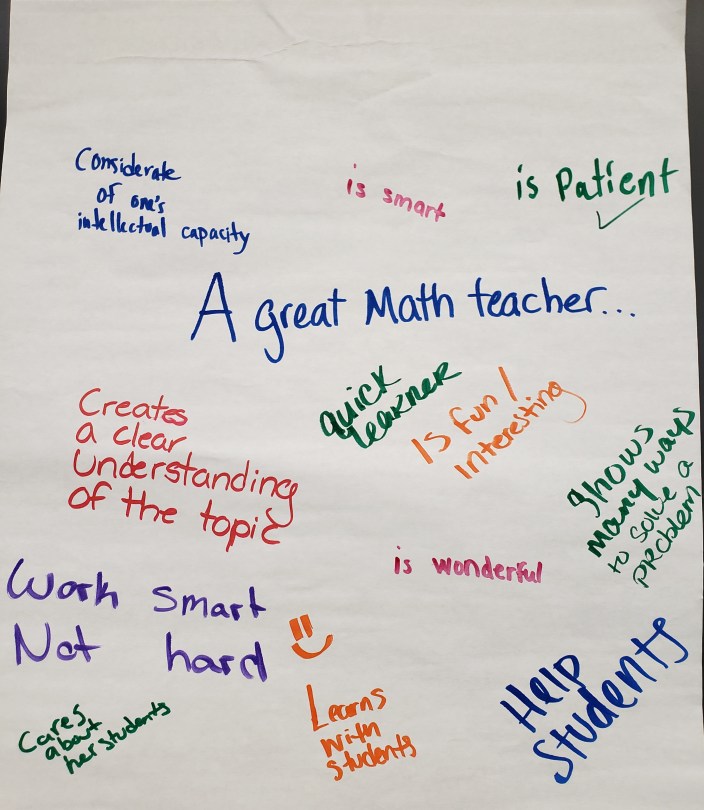 Considerate
of one's
intellectual capacity
is smart
is Patient
A great Math teacher...
quick
Learner
Is fun /
Interesting
Creates
a clear
Understanding
of the topic
Shows
many ways
to solve a
problem
is wonderful
Work smart
Not hard
Cares
about
her students
Learns
with
students
Help
Students